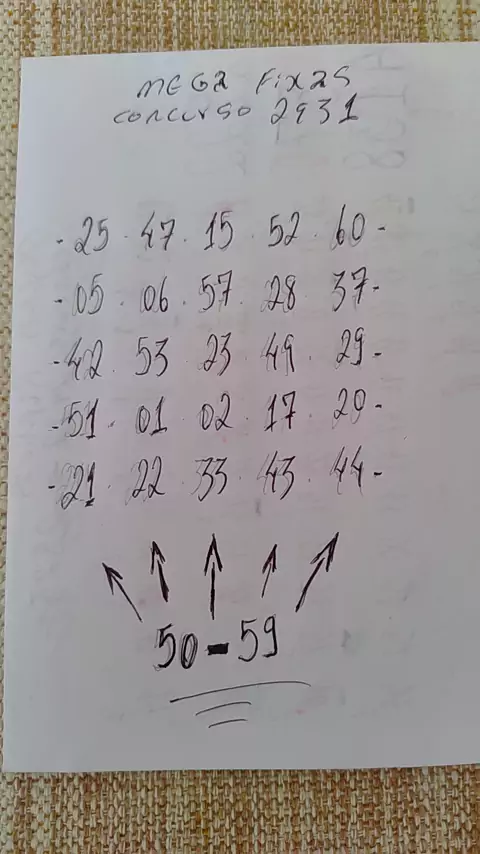 MEGA FIXAS
CONCURSO 2931
- 25 . 47 . 15 . 52 . 60 -
- 05 . 06 . 57 . 28 . 37 -
- 42 . 53 . 23 . 49 . 29 -
- 51 . 01 . 02 . 17 . 20 -
- 21 . 22 . 33 . 43 . 44 -
50 - 59